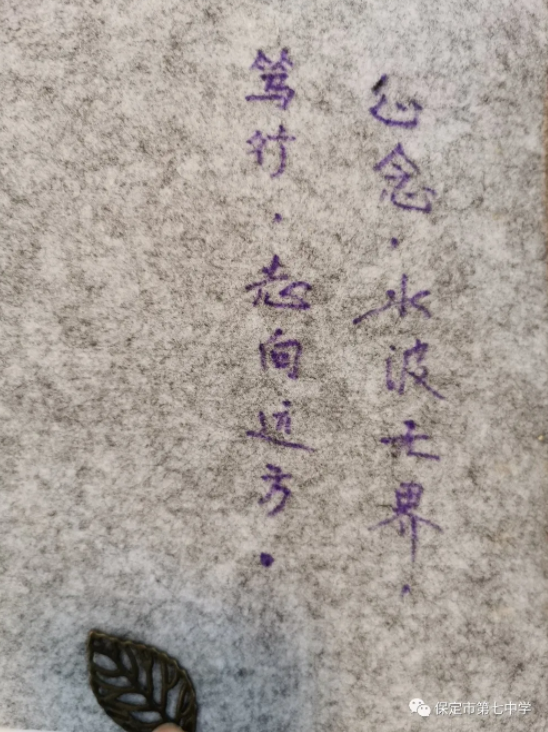 心念·水波无界·
笃行·志向远方·
保定市第七中学